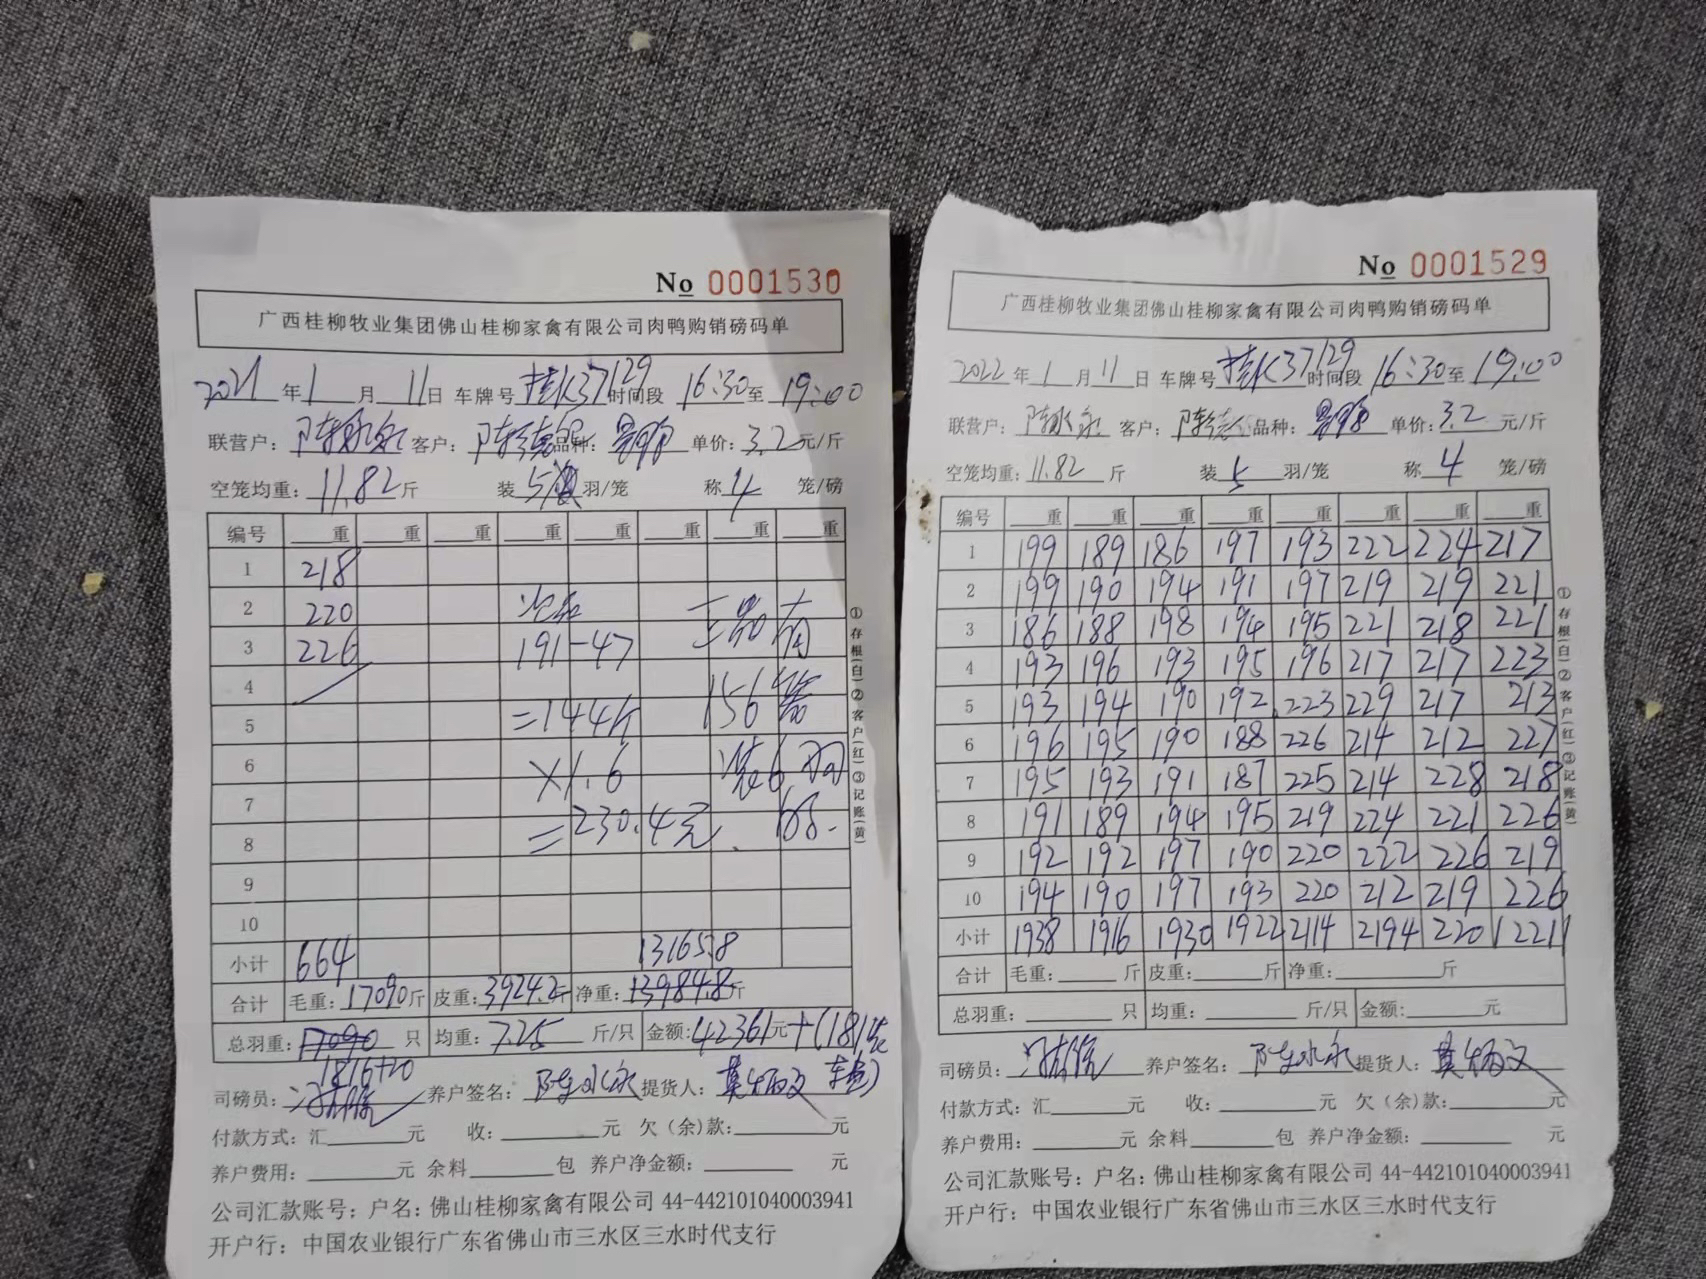 No 0001530
广西桂柳牧业集团佛山桂柳家禽有限公司肉鸭购销磅码单
2021年1月11日 车牌号 桂K37129 时间段 16:30至19:00
联营户：陈水永 客户：品种：单价：3.2元/斤
空笼均重：11.82斤 装5羽/笼 称4笼/磅
编号 重 重 重 重 重 重 重 重
1 218
2 220
3 226 191-47
4 156
5 =144斤
6 装6羽
7 ×1.6
8 =230.4元
9
10
小计 664 13165.8
合计 毛重：17090斤 皮重：3924.2斤 净重：13984.8斤
总羽重：17090只 均重：7.25斤/只 金额：42361元+(181
1816+20
司磅员：养户签名：陈水永 提货人：
付款方式：汇 元 收： 元 欠（余）款： 元
养户费用： 元 余料 包 养户净金额： 元
公司汇款账号；户名：佛山桂柳家禽有限公司 44-442101040003941
开户行：中国农业银行广东省佛山市三水区三水时代支行
①存根(白)②客户(红)③记账(黄)
No 0001529
广西桂柳牧业集团佛山桂柳家禽有限公司肉鸭购销磅码单
2022年1月11日 车牌号 桂K37129 时间段 16:30至19:00
联营户：陈水永 客户：品种：单价：3.2元/斤
空笼均重：11.82斤 装5羽/笼 称4笼/磅
编号 重 重 重 重 重 重 重 重
1 199 189 186 197 193 222 224 217
2 199 190 194 191 197 219 219 221
3 186 188 198 194 195 221 218 221
4 193 196 193 195 196 217 217 223
5 193 194 190 192 223 229 217 213
6 196 195 190 188 226 214 212 227
7 195 193 191 187 225 214 228 218
8 191 189 194 195 219 224 221 226
9 192 192 197 190 220 222 226 219
10 194 190 197 193 220 212 219 226
小计 1938 1916 1930 1922 2114 2194 2201 2211
合计 毛重： 斤 皮重： 斤 净重： 斤
总羽重： 只 均重： 斤/只 金额： 元
司磅员：养户签名：陈水永 提货人：
付款方式：汇 元 收： 元 欠（余）款： 元
养户费用： 元 余料 包 养户净金额： 元
公司汇款账号：户名：佛山桂柳家禽有限公司 44-442101040003941
开户行：中国农业银行广东省佛山市三水区三水时代支行
①存根(白)②客户(红)③记账(黄)